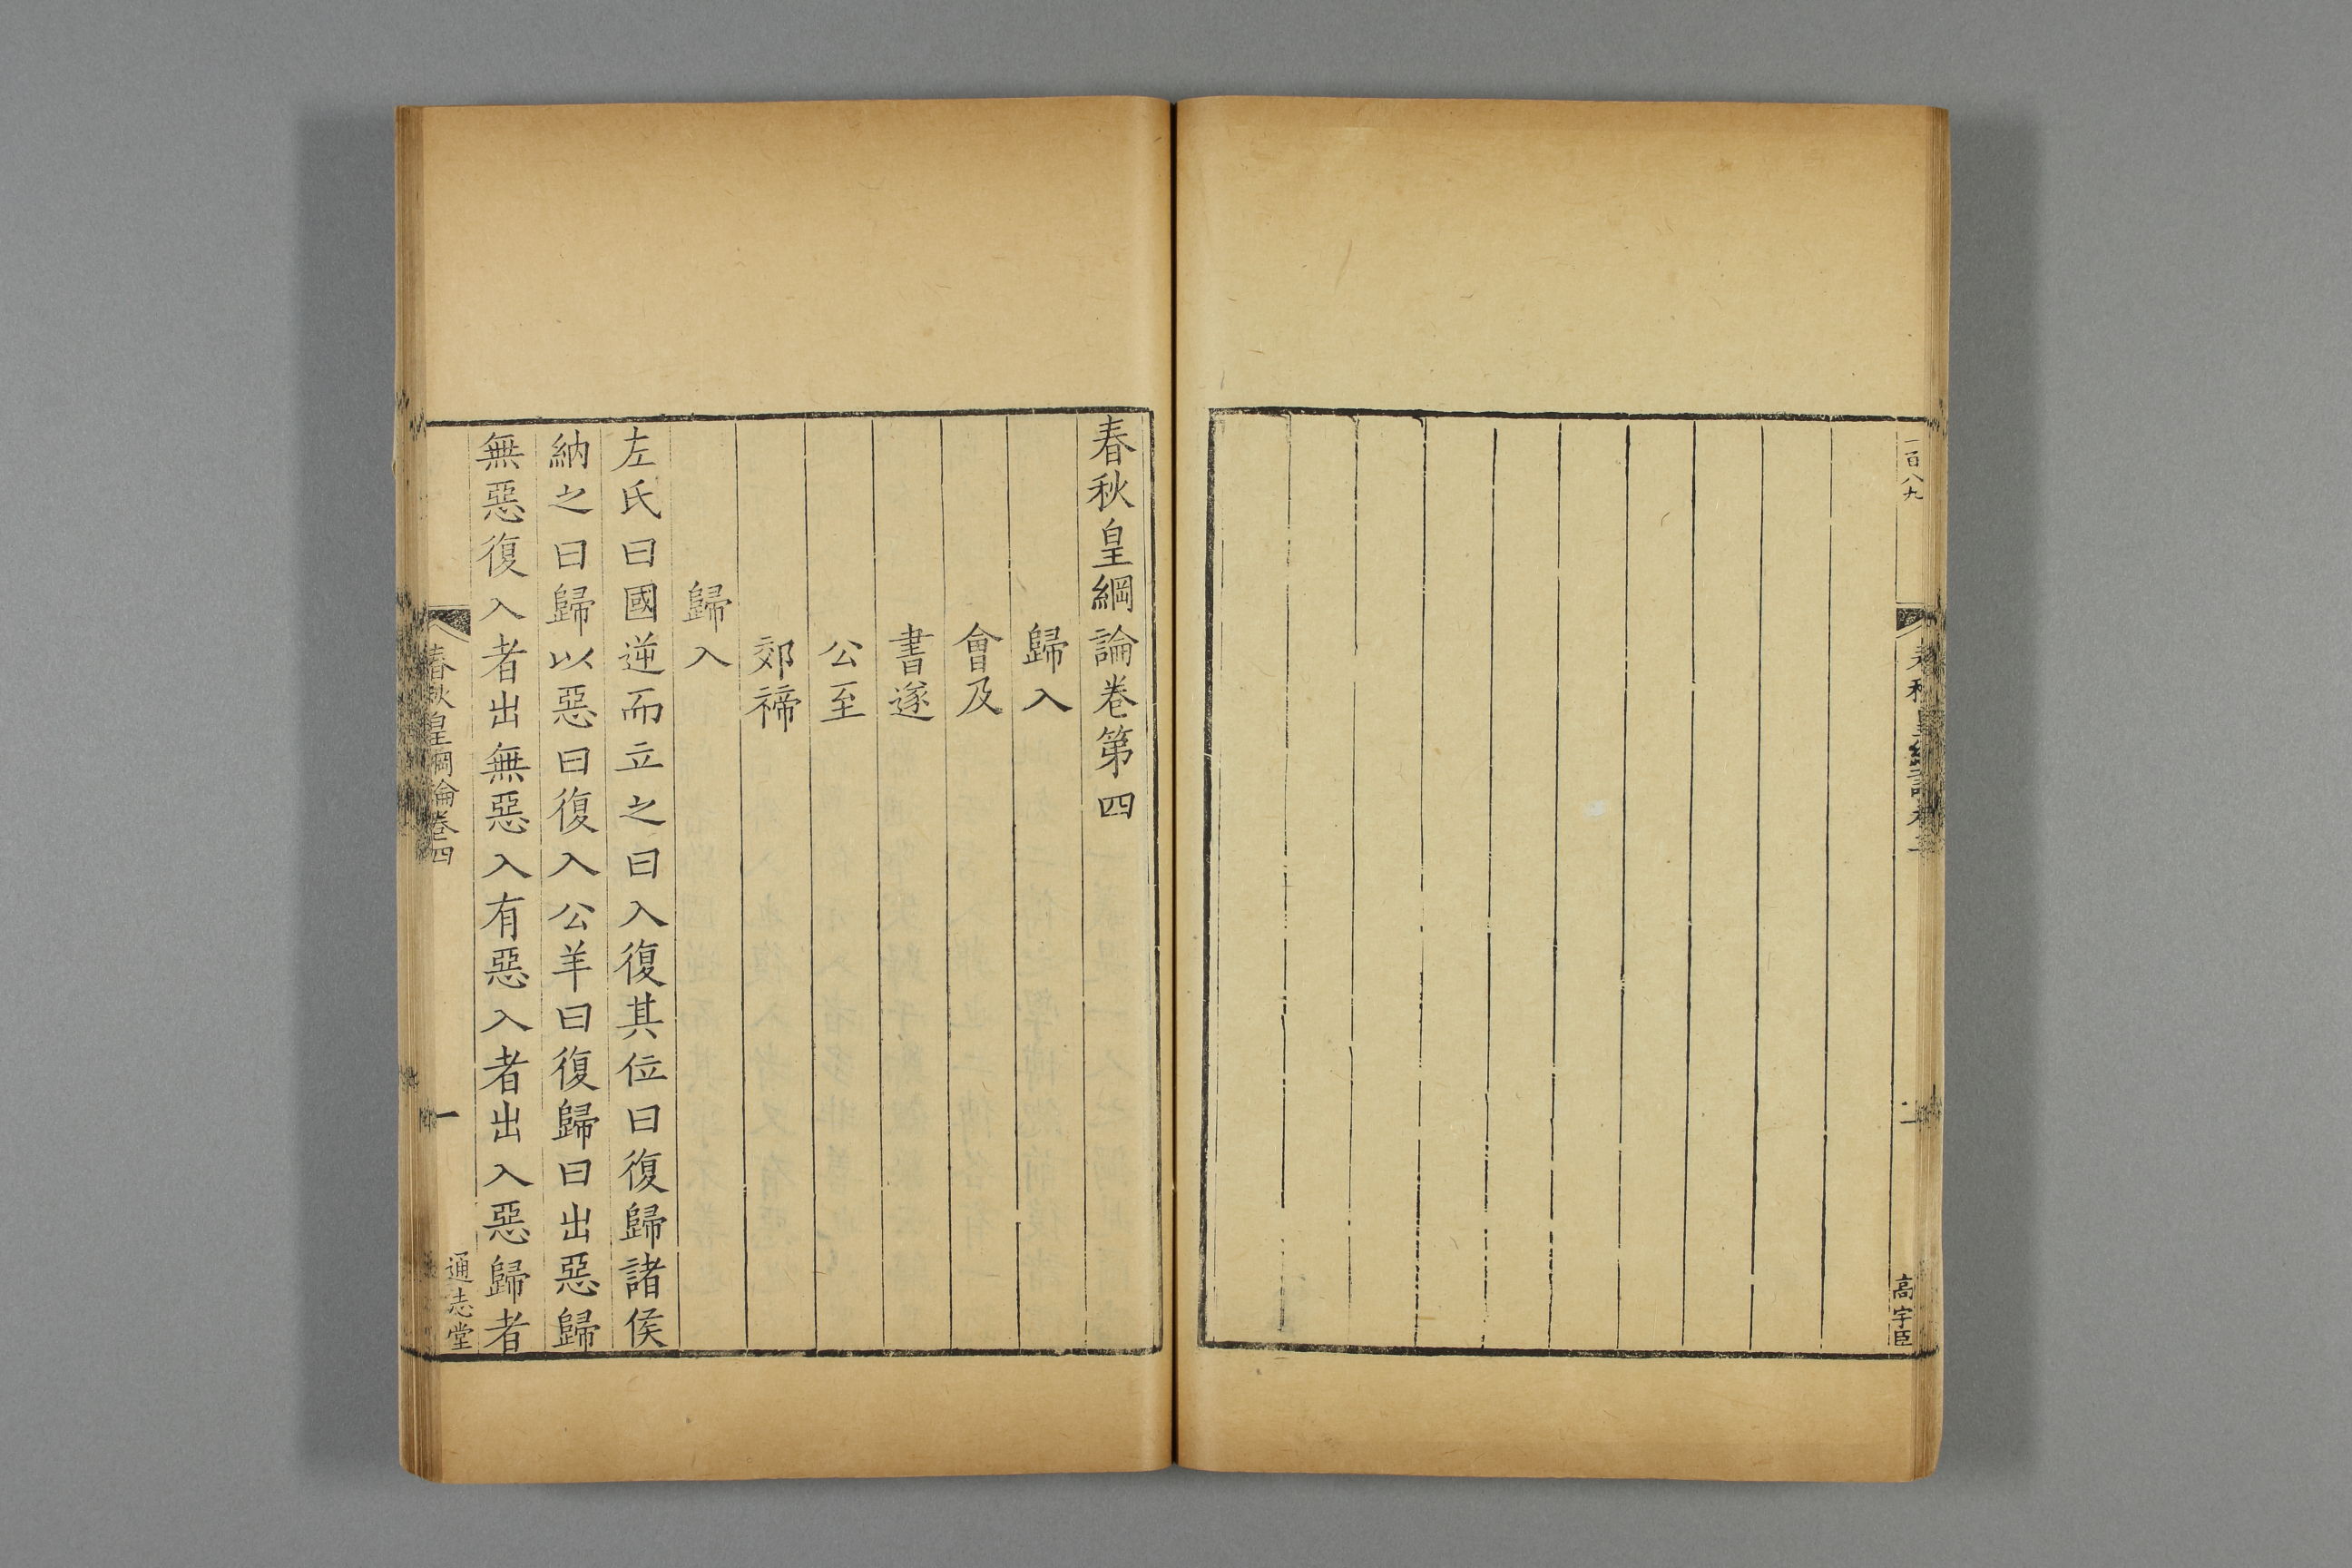 一百八九
二
高宇臣
春秋皇綱論卷第四
歸入
會及
書遂
公至
郊禘
歸入
左氏曰國逆而立之曰入復其位曰復歸諸侯
納之曰歸以惡曰復入公羊曰復歸曰出惡歸
無惡復入者出無惡入有惡入者出入惡歸者
春秋皇綱論卷四
一
通志堂